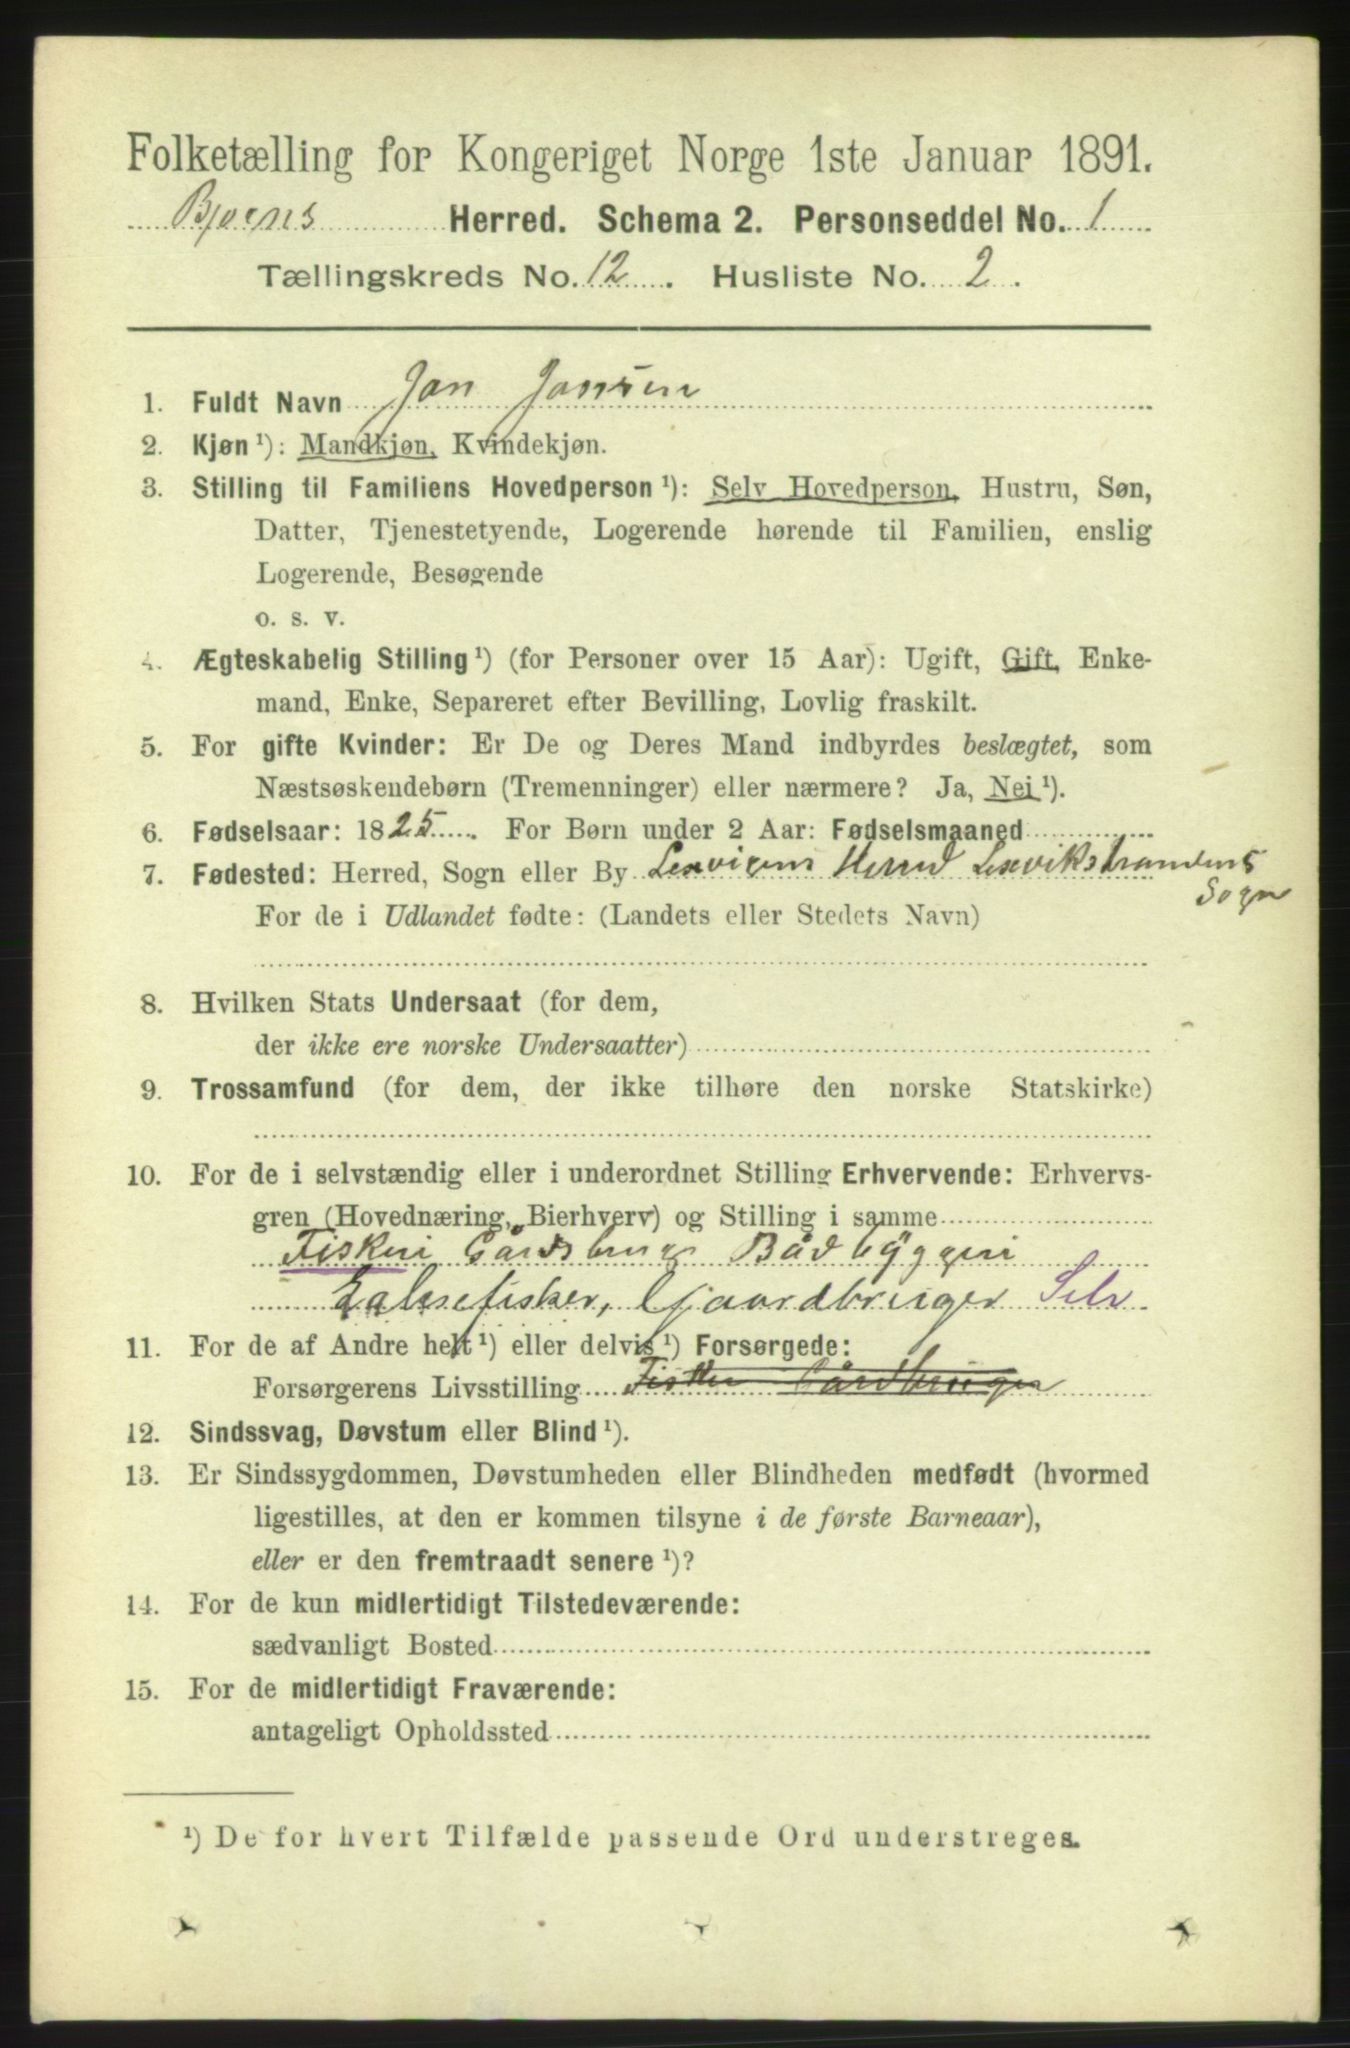 Folketælling for Kongeriget Norge 1ste Januar 1891.
Bjørnes Herred. Schema 2. Personseddel No. 1
Tællingskreds No. 12. Husliste No. 2.
1. Fuldt Navn Jon Jonsen
2. Kjøn ¹): Mandkjøn, Kvindekjøn.
3. Stilling til Familiens Hovedperson ¹): Selv Hovedperson, Hustru, Søn,
Datter, Tjenestetyende, Logerende hørende til Familien, enslig
Logerende, Besøgende
o. s. v.
4. Ægteskabelig Stilling ¹) (for Personer over 15 Aar): Ugift, Gift, Enke-
mand, Enke, Separeret efter Bevilling, Lovlig fraskilt.
5. For gifte Kvinder: Er De og Deres Mand indbyrdes beslægtet, som
Næstsøskendebørn (Tremenninger) eller nærmere? Ja, Nei ¹).
6. Fødselsaar: 1825. For Børn under 2 Aar: Fødselsmaaned
7. Fødested: Herred, Sogn eller By Lexvigens Herred Lexvikstrandens
Sogn
For de i Udlandet fødte: (Landets eller Stedets Navn)
8. Hvilken Stats Undersaat (for dem,
der ikke ere norske Undersaatter)
9. Trossamfund (for dem, der ikke tilhøre den norske Statskirke)
10. For de i selvstændig eller i underordnet Stilling Erhvervende: Erhvervs-
gren (Hovednæring, Bierhverv) og Stilling i samme
Fiskeri Gårdsbrug Bådbyggeri
fisker, Gaardbruger Selv
11. For de af Andre helt ¹) eller delvis ¹) Forsørgede:
Forsørgerens Livsstilling Fisker Gårdbruger
12. Sindssvag, Døvstum eller Blind ¹).
13. Er Sindssygdommen, Døvstumheden eller Blindheden medfødt (hvormed
ligestilles, at den er kommen tilsyne i de første Barneaar),
eller er den fremtraadt senere ¹)?
14. For de kun midlertidigt Tilstedeværende:
sædvanligt Bosted
15. For de midlertidigt Fraværende:
antageligt Opholdssted
¹) De for hvert Tilfælde passende Ord understreges.